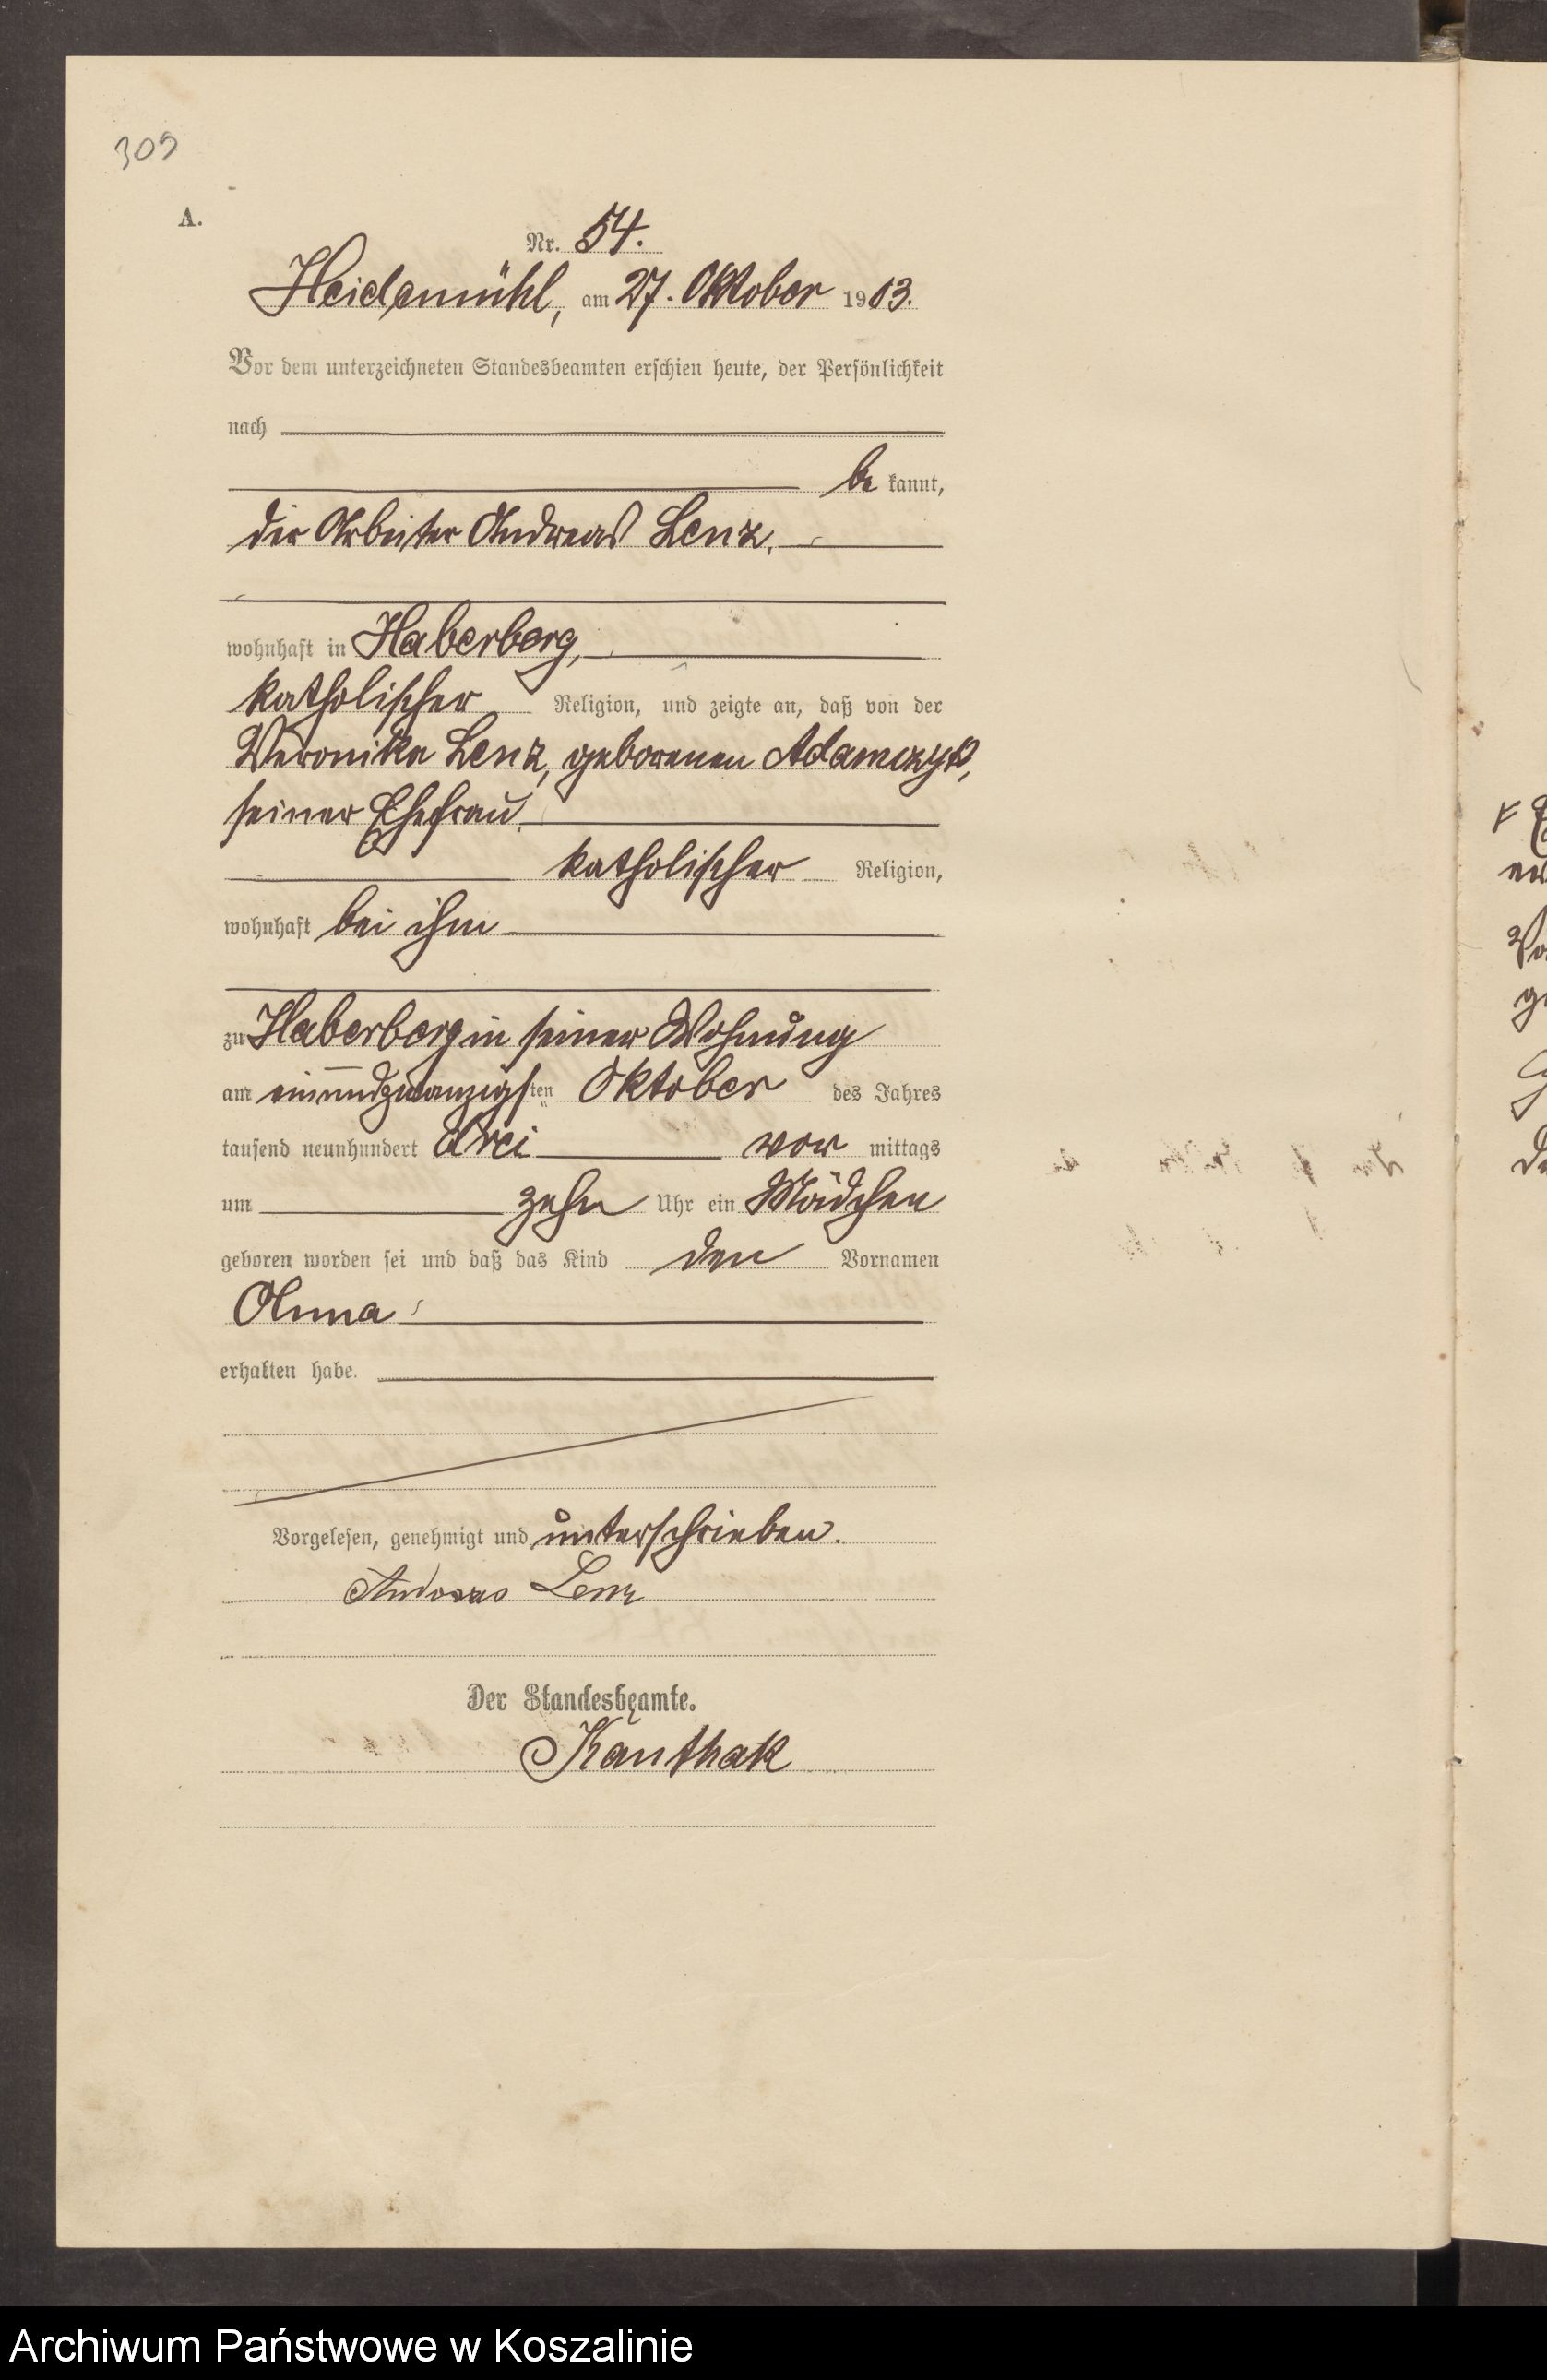 309
A.
Nr. 54.
Heidemühl, am 27. Oktober 1903.
Vor dem unterzeichneten Standesbeamten erschien heute, der Persönlichkeit
nach
be kannt,
der Arbeiter Andreas Lenz,
wohnhaft in Haberberg,
katholischer Religion, und zeigte an, daß von der
Veronika Lenz, geborenen Adamczyk,
seiner Ehefrau,
katholischer Religion,
wohnhaft bei ihm
zu Haberberg in seiner Wohnung
am einundzwanzigsten Oktober des Jahres
tausend neunhundert drei vor mittags
um zehn Uhr ein Mädchen
geboren worden sei und daß das Kind den Vornamen
Anna
erhalten habe.
Vorgelesen, genehmigt und unterschrieben.
Andreas Lenz
Der Standesbeamte.
Kanthak
Archiwum Państwowe w Koszalinie